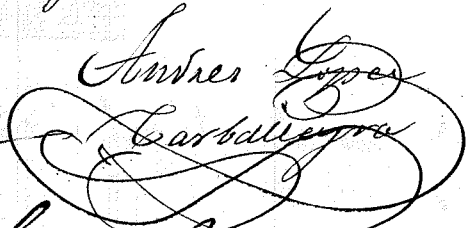 Andres Lopez
Carballeyra